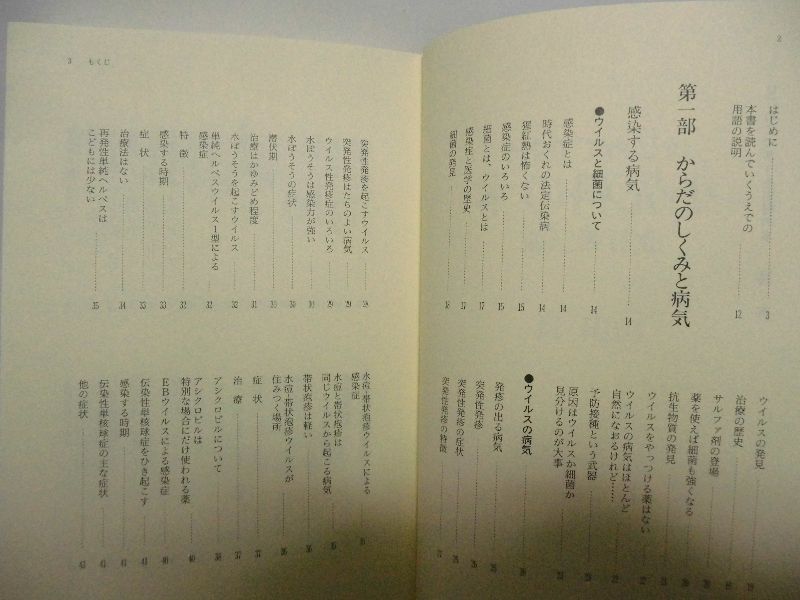 2
はじめに……3
本書を読んでいくうえでの
用語の説明……12
第一部 からだのしくみと病気
感染する病気……14
●ウイルスと細菌について……14
感染症とは……14
時代おくれの法定伝染病……14
猩紅熱は怖くない……15
感染症のいろいろ……15
細菌とは、ウイルスとは……17
感染症と医学の歴史……17
細菌の発見……18
ウイルスの発見……19
治療の歴史
サルファ剤の登場
薬を使えば細菌も強くなる
抗生物質の発見
ウイルスをやっつける薬はない
ウイルスの病気はほとんど
自然になおるけれど……
予防接種という武器
原因はウイルスか細菌か
見分けるのが大事
●ウイルスの病気
発疹の出る病気
突発性発疹
突発性発疹の症状
突発性発疹の特徴
3 もくじ
突発性発疹を起こすウイルス……28
突発性発疹はたちのよい病気……29
ウイルス性発疹症のいろいろ……29
水ぼうそうは感染力が強い……30
水ぼうそうの症状……30
潜伏期……31
治療はかゆみどめ程度……31
水ぼうそうを起こすウイルス……32
単純ヘルペスウイルス1型による
感染症……32
特徴……32
感染する時期……33
症状……33
治療法はない……34
再発性単純ヘルペスは
こどもには少ない……35
水痘・帯状疱疹ウイルスによる
感染症……35
水痘と帯状疱疹は
同じウイルスから起こる病気……35
帯状疱疹は軽い……36
水痘・帯状疱疹ウイルスが
住みつく場所……36
症状……37
治療……37
アシクロビルについて……38
アシクロビルは
特別な場合にだけ使われる薬……40
EBウイルスによる感染症……40
伝染性単核球症をひき起こす……41
感染する時期……41
伝染性単核球症の主な症状……42
他の症状……43